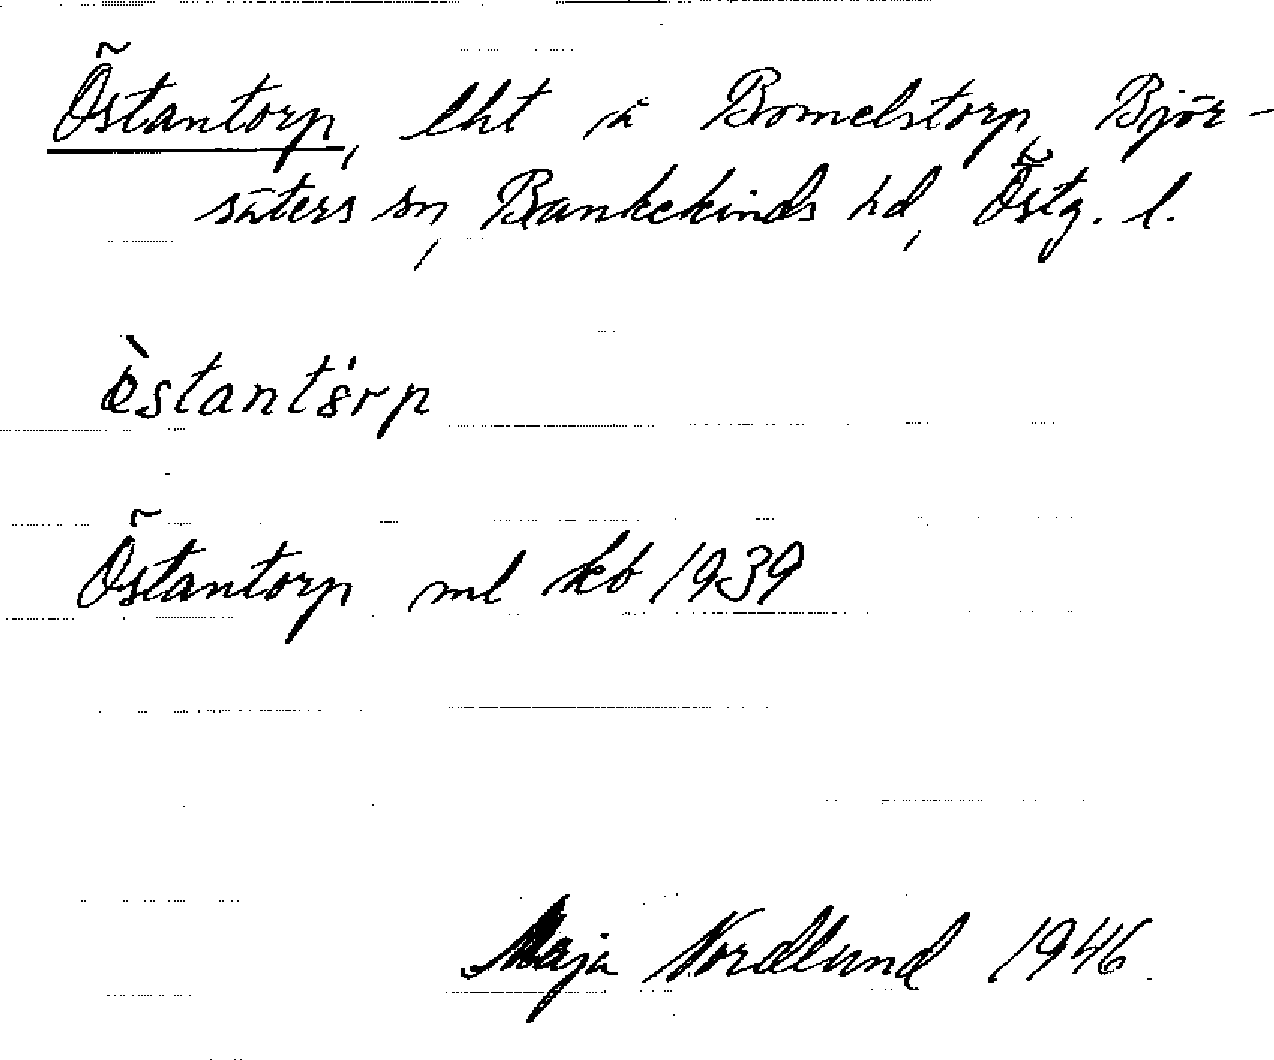 Östantorp, lht å Bomelstorp, Björ-
säters sn, Bankekinds hd, Östg. l.
östantorp
Östantorp ml kb 1939
Maja Nordlund 1946